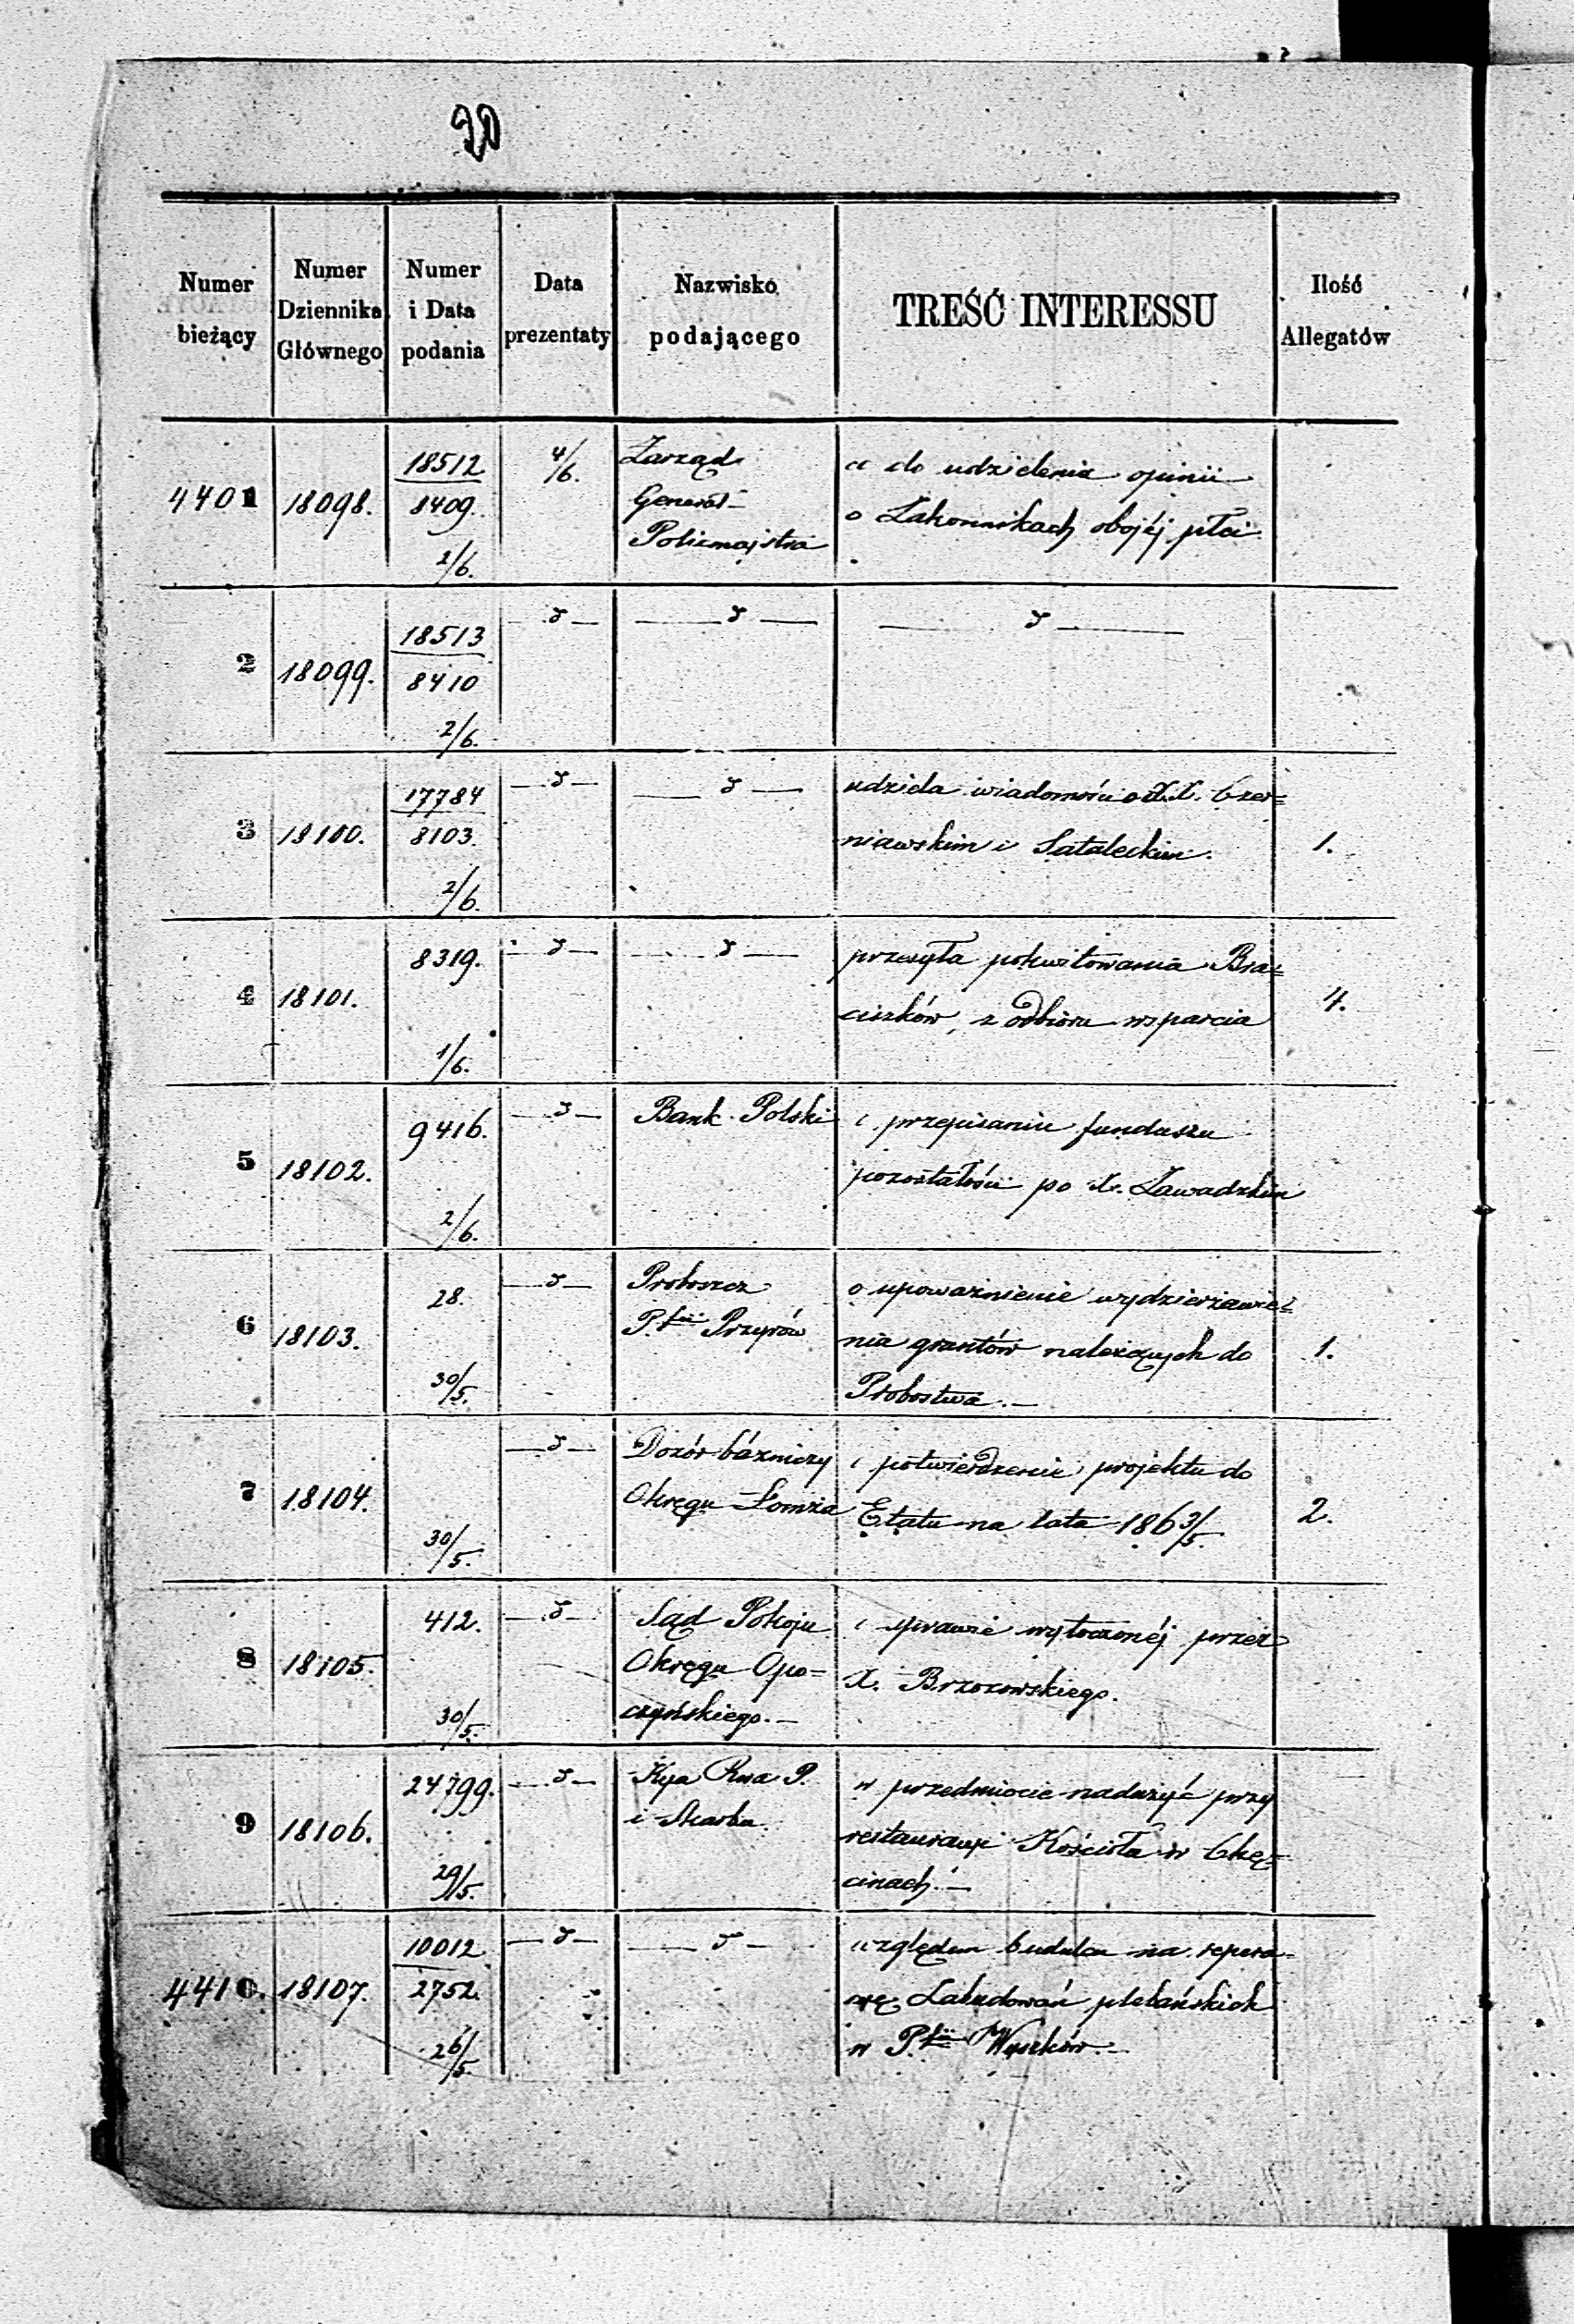 Numer bieżący
Numer Dziennika Głównego
Numer i Data podania
Data prezentaty
Nazwisko podającego
TREŚĆ INTERESSU
Ilość Allegatów
4401
18098.
18512
8409.
2/6.
4/6.
Zarząd
Generał-
Policmajstra
co do udzielenia opinii
o Zakonnikach obojéj płci
2
18099.
18513
8410
2/6.
3
18100.
17784
8103.
2/6.
udziela wiadomości o X.X. Czer=
niawskim i Sataleckim.
1.
4
18101.
8319.
1/6.
przesyła pokwitowania Bra=
ciszków, z odbioru wsparcia
4.
5
18102.
9416.
2/6.
Bank Polski
o przepisaniu funduszu
pozostałości po X. Zawadzkim
6
18103.
28.
30/5.
Proboszcz
P.fii Przyrów
o upoważnienie wydzierżawie=
nia gruntów należących do
Probostwa.—
1.
7
18104.
30/5.
Dozór bóżniczy
Okręgu Łomża
o potwierdzenie projektu do
Etatu na lata 1863/5.
2.
8
18105.
412.
30/5.
Sąd Pokoju
Okręgu Opo=
czyńskiego.—
o sprawie wytoczonéj przez
X. Brzozowskiego.
9
18106.
24799.
29/5.
Kya Rwa P.
i Skarbu.
w przedmiocie nadużyć przy
restauracyi Kościoła w Chę=
cinach.—
4410.
18107.
10012
2752.
26/5.
względem budulcu na repera-
cyę Zabudowań plebańskich
w P.fii Wyszków.—